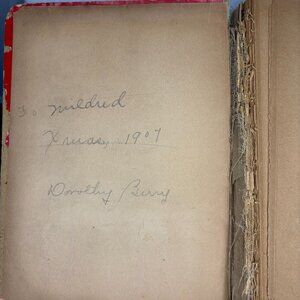 To Mildred
Xmas, 1907
Dorothy Berry